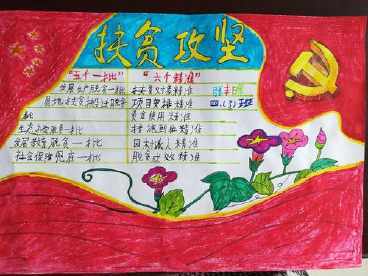 扶贫攻坚
"五个一批"
"六个精准"
发展生产脱贫一批
易地扶贫搬迁脱贫一批
生态补偿脱贫一批
发展教育脱贫一批
社会保障兜底一批
扶贫对象精准
项目安排精准
资金使用精准
措施到户精准
因村派人精准
脱贫成效精准